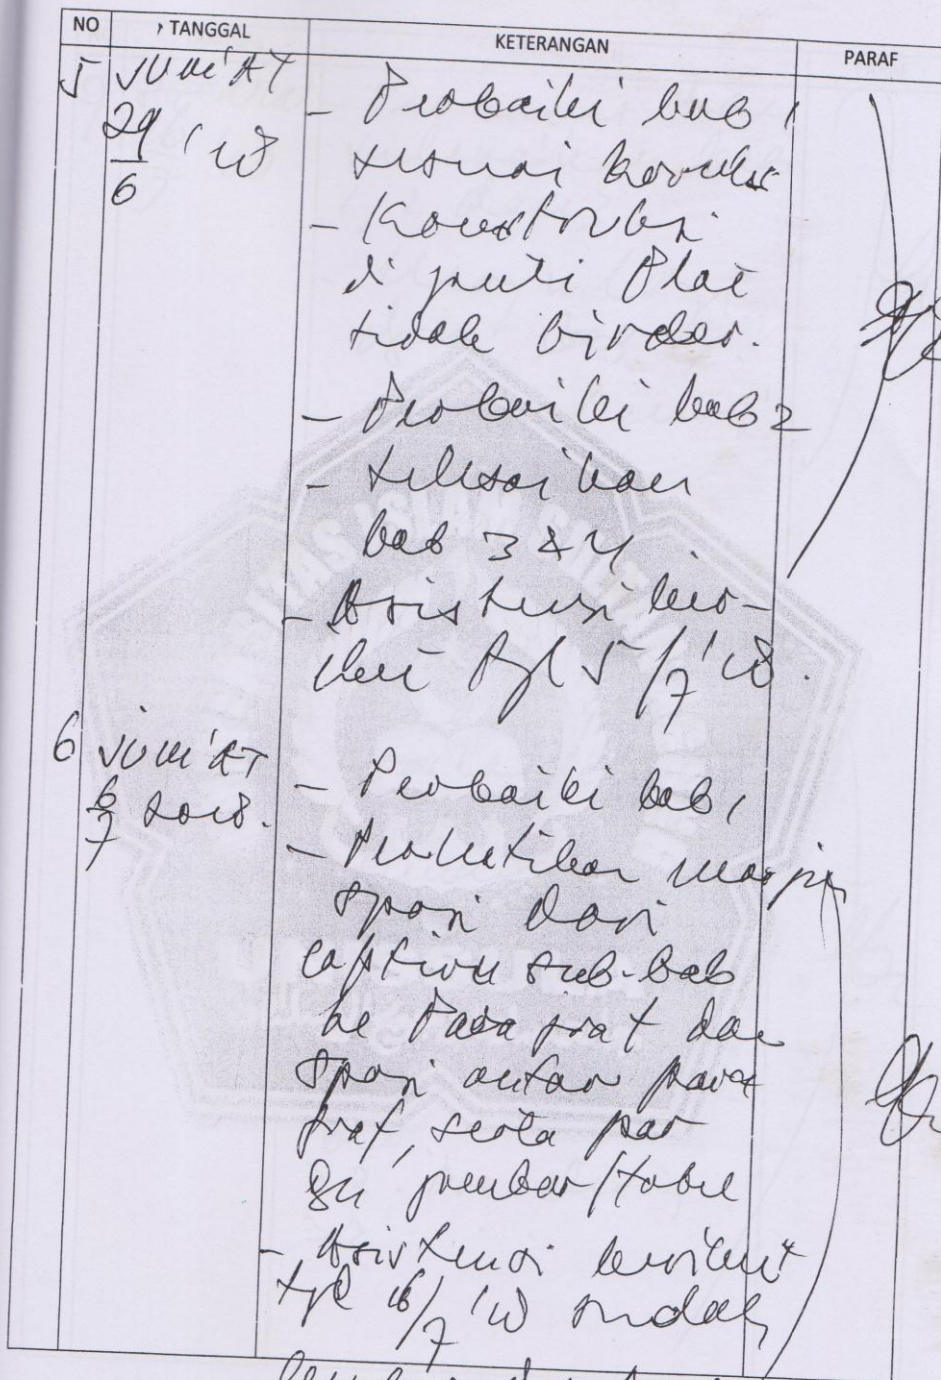 NO TANGGAL KETERANGAN PARAF
5 JUM'AT
29/6 '18
- Perbaiki bab 1
sesuai koreksi
- Konstruksi
di ganti Plat
tidak Girder.
- Perbaiki bab 2
- selesaikan
bab 3 & 4.
- Asistensi beri-
kut tgl 5/7 '18.
6 JUM'AT
6/7 2018.
- Perbaiki bab 1
- Perhatikan margin
spasi dari
caption sub-bab
ke Paragraf dan
spasi antar para
graf, serta
gambar/tabel
- Asistensi berikut
tgl 16/7 '18 sudah